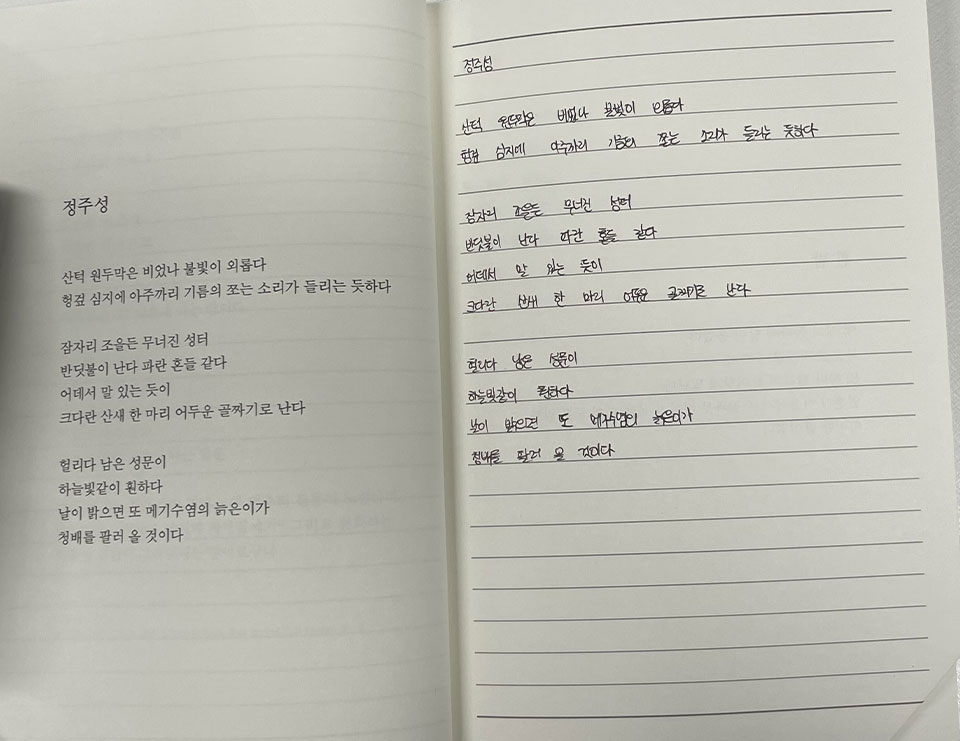 정주성
산턱 원두막은 비었나 불빛이 외롭다
헝겊 심지에 아주까리 기름의 쪼는 소리가 들리는 듯하다
잠자리 조을든 무너진 성터
반딧불이 난다 파란 혼들 같다
어데서 말 있는 듯이
크다란 산새 한 마리 어두운 골짜기로 난다
헐리다 남은 성문이
하늘빛같이 훤하다
날이 밝으면 또 메기수염의 늙은이가
청배를 팔러 올 것이다
정주성
산턱 원두막은 비었나 불빛이 외롭다
헝겊 심지에 아주까리 기름의 쪼는 소리가 들리는 듯하다
잠자리 조을든 무너진 성터
반딧불이 난다 파란 혼들 같다
어데서 말 있는 듯이
크다란 산새 한 마리 어두운 골짜기로 난다
헐리다 남은 성문이
하늘빛같이 훤하다
날이 밝으면 또 메기수염의 늙은이가
청배를 팔러 올 것이다